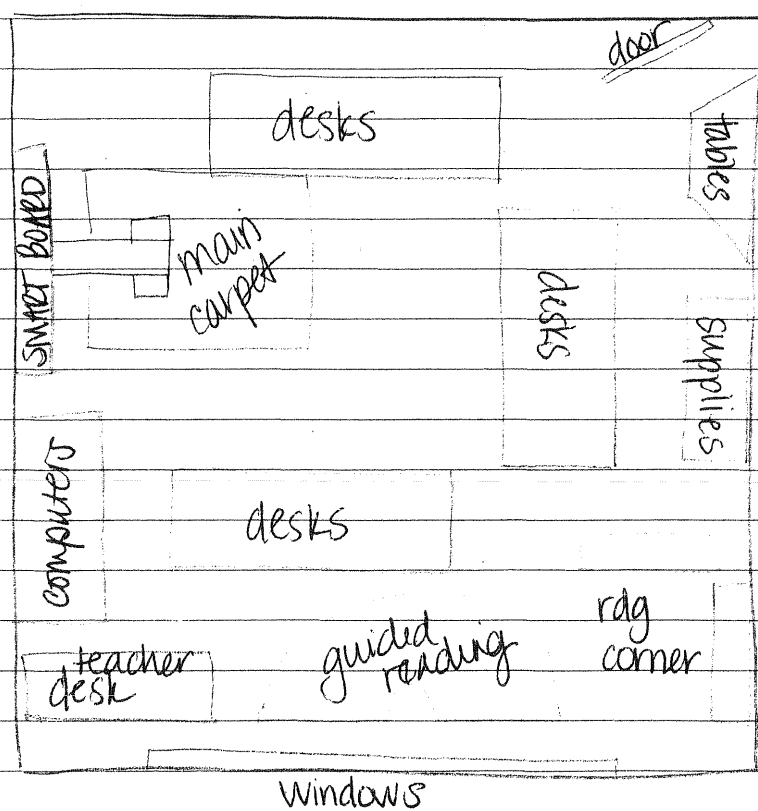 door
desks
tables
SMART BOARD
main
carpet
desks
supplies
computers
desks
rdg
corner
guided
reading
teacher
desk
Windows